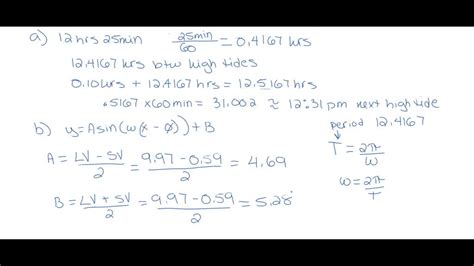 a) 12hrs 25min 25min/60 = 0.4167 hrs
12.4167 hrs btw high tides
0.10hrs + 12.4167hrs = 12.5167hrs
.5167 x60min = 31.002 ≈ 12:31 pm next high tide
b) y=Asin(ω(x-φ))+B
period 12.4167
A = LV - SV/2 = 9.97 - 0.59/2 = 4.69
T = 2π/ω
B = LV + SV/2 = 9.97 - 0.59/2 = 5.28
ω = 2π/T